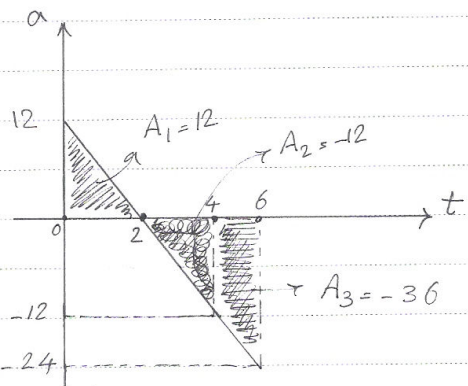 a
12
A₁ = 12
a
A₂ = -12
4
6
t
0
2
A₃ = -36
-12
-24